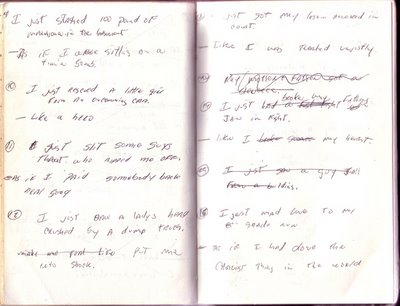 I just stashed 100 pound of
in the basement
- As if I were sitting on a
time bomb.
I just rescued a little girl
from an oncoming car.
- Like a hero
11 I just slit some guys
throat who ripped me off.
- As if I paid somebody back
real good
I just saw a lady's head
crushed by a dump truck.
made me feel like put me
into shock.
I just got my loan in
court.
- Like I was treated unjustly
Not got a
divorce.
I just had a fist fight broke my Fathers
Jaw in fight.
- like I broke my heart.
I just saw a guy fall
from a building.
16 I just mad love to my
6th grade nun
- as if I had done the
thing in the world